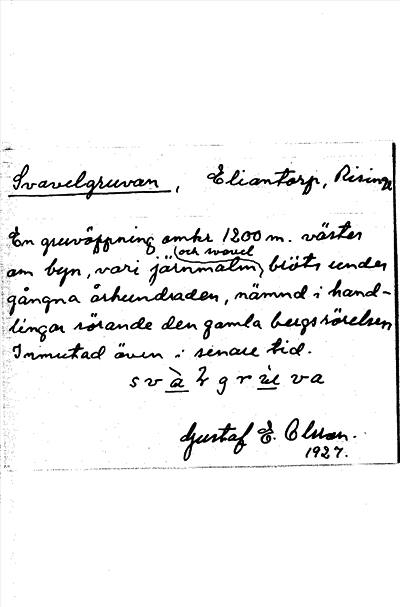 Svavelgruvan, Eliantorp, Risinge
En gruvöppning omkr 1200 m. väster
om byn, vari järnmalm (och svavel) bröts under
gångna århundraden, nämnd i hand-
lingar rörande den gamla bergsrörelsen
Inmutad även i senare tid.
svàlgrùva
Gustaf E. Olsson.
1927.